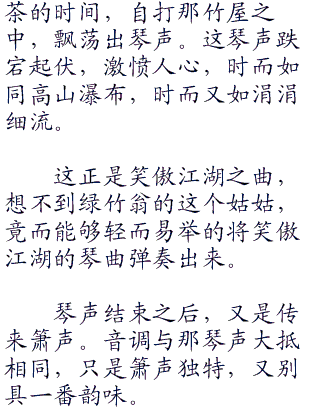 茶的时间，自打那竹屋之
中，飘荡出琴声。这琴声跌
宕起伏，激愤人心，时而如
同高山瀑布，时而又如涓涓
细流。
这正是笑傲江湖之曲，
想不到绿竹翁的这个姑姑，
竟而能够轻而易举的将笑傲
江湖的琴曲弹奏出来。
琴声结束之后，又是传
来箫声。音调与那琴声大抵
相同，只是箫声独特，又别
具一番韵味。